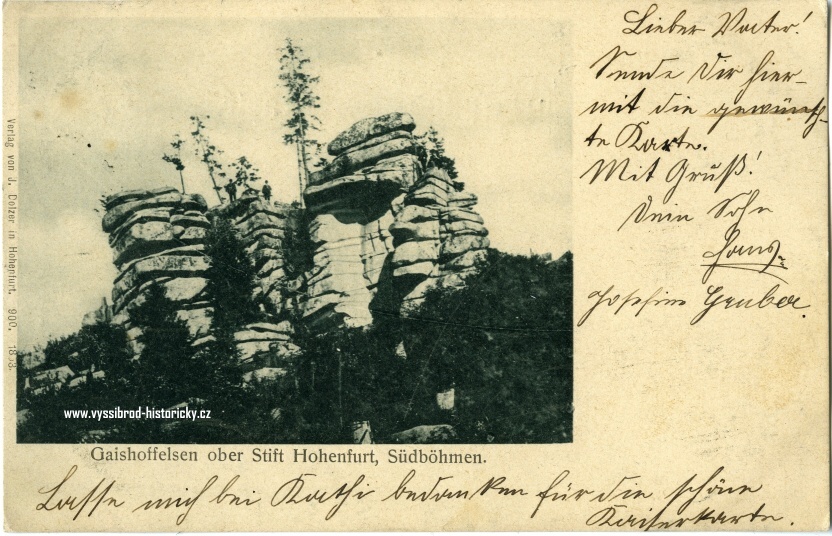 Lieber Vater!
Sende Dir hier-
mit die gewünsch-
te Karte.
Mit Gruß!
Dein Sohn
Hans
Josefine Gruber.
Verlag von J. Dolzer in Hohenfurt. 900. 1853.
www.vyssibrod-historicky.cz
Gaishoffelsen ober Stift Hohenfurt, Südböhmen.
Lasse mich bei Kathi bedanken für die schöne
Kaiserkarte.